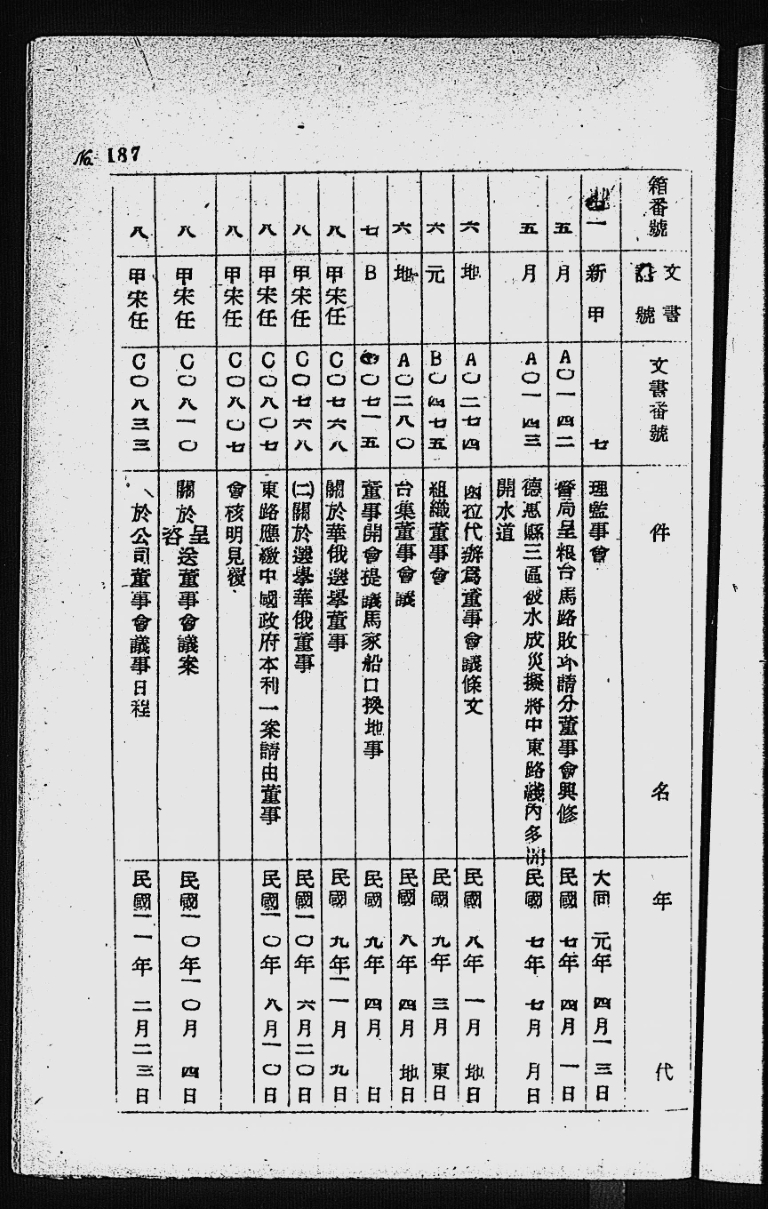 No. 187
箱番號 文書 號 文書番號 件名 年代
一 新甲 七 理監事會 大同元年四月一三日
五 月 A〇一四二 督局呈報台馬路敗坏請分董事會興修 民國七年四月一日
五 月 A〇一四三 德惠縣三區被水成災擬將中東路綫內多開
開水道 民國七年七月 月日
六 地 A〇二七四 函拉代辦爲董事會議條文 民國八年一月 地日
六 元 B〇四七五 組織董事會 民國九年三月 東日
六 地 A〇二八〇 台集董事會議 民國八年四月 地日
七 B 〇七一五 董事開會提議馬家船口換地事 民國九年四月 日
八 甲宋任 C〇七六八 關於華俄選舉董事 民國九年一一月九日
八 甲宋任 C〇七六八 (二)關於選舉華俄董事 民國一〇年六月二〇日
八 甲宋任 C〇八〇七 東路應繳中國政府本利一案請由董事 民國一〇年八月一〇日
八 甲宋任 C〇八〇七 會核明見復
八 甲宋任 C〇八一〇 關於呈咨送董事會議案 民國一〇年一〇月四日
八 甲宋任 C〇八三三 於公司董事會議事日程 民國一一年二月二三日